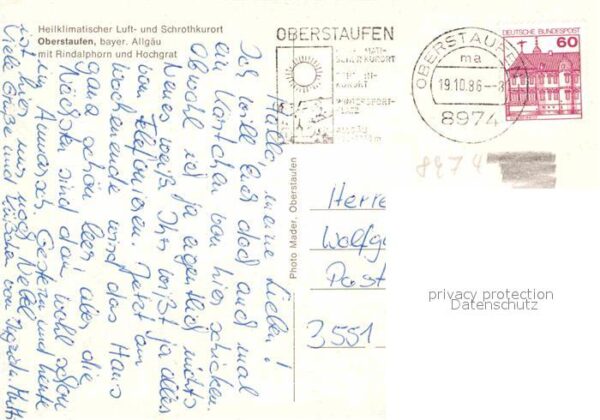 Heilklimatischer Luft- und Schrothkurort
Oberstaufen, bayer. Allgäu
mit Rindalphorn und Hochgrat
OBERSTAUFEN
SCHROTHKURORT
KURORT
WINTERSPORT-
OBERSTAUFEN
ma
19.10.86--8
8974
DEUTSCHE BUNDESPOST
60
8974
Hallo, meine Lieben!
Ich will Euch doch auch mal
ein Kärtchen von hier schicken.
Obwohl ich ja eigentlich nichts
Neues weiß. Ihr wißt ja alles
vom Telefonieren. Jetzt am
Wochenende wird das Haus
ganz schön leer, aber die
Nächsten sind dann wohl schon
im Anmarsch. Gestern und heute
ist hier nur noch Nebel.
Viele Grüße und Küßchen von
Photo Mader, Oberstaufen
Herre
Wolfg
Post
3551
privacy protection
Datenschutz